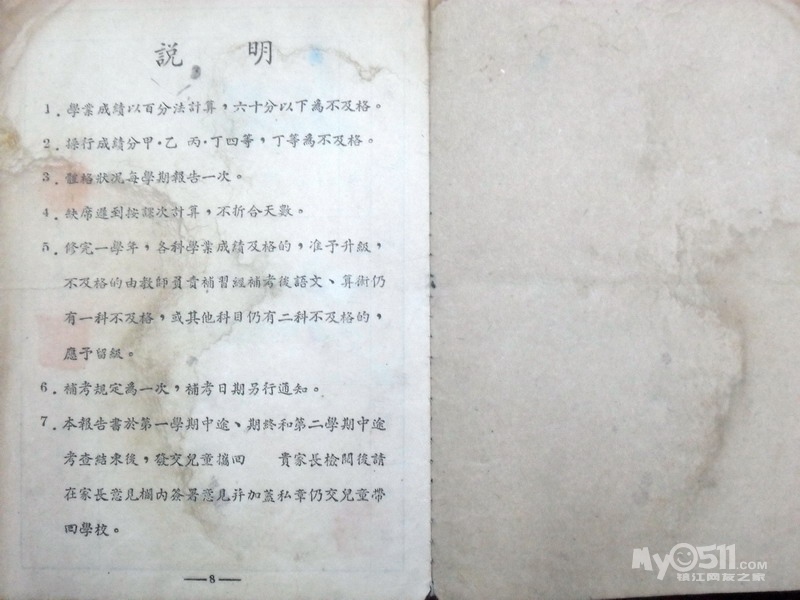 説 明
1. 學業成績以百分法計算，六十分以下為不及格。
2. 操行成績分甲·乙 丙·丁四等，丁等為不及格。
3. 體格狀況每學期報告一次。
4. 缺席遲到按課次計算，不折合天數。
5. 修完一學年，各科學業成績及格的，准予升級，
不及格的由教師負責補習經補考後語文、算術仍
有一科不及格，或其他科目仍有二科不及格的，
應予留級。
6. 補考規定為一次，補考日期另行通知。
7. 本報告書於第一學期中途、期終和第二學期中途
考查結束後，發交兒童攜回 貴家長檢閱後請
在家長意見欄內簽署意見并加蓋私章仍交兒童帶
回學校。
—8—
My0511.COM
镇江网友之家